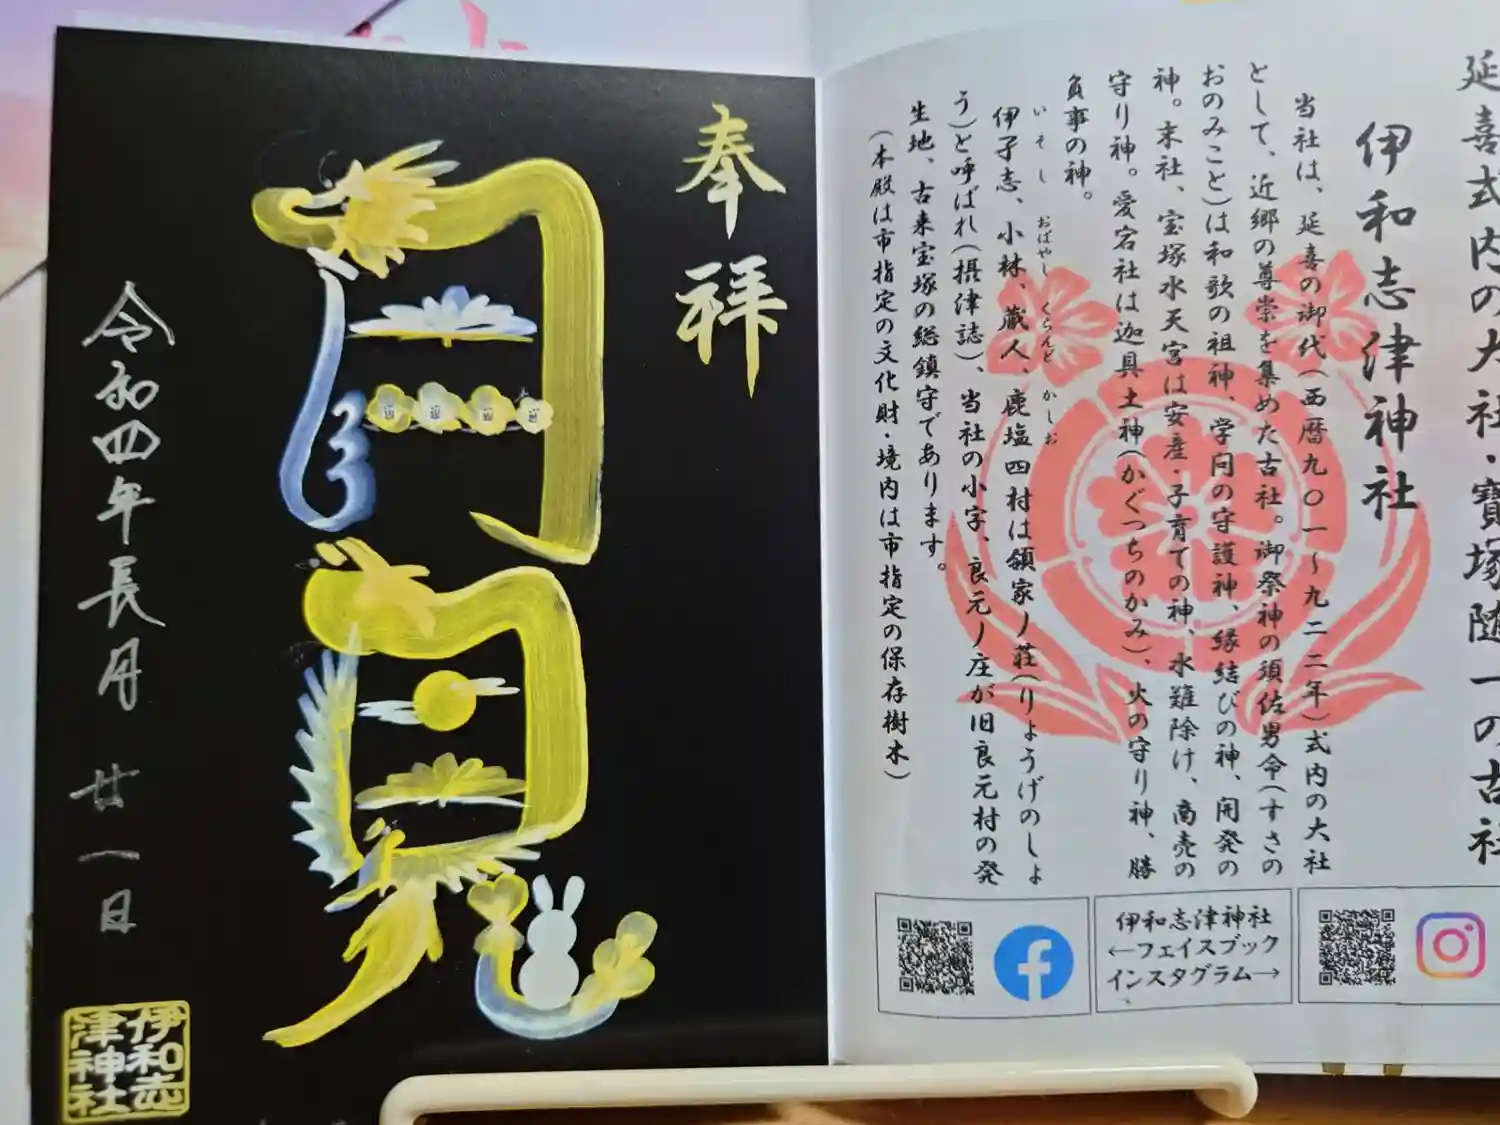 奉拝
月見
令和四年長月 廿一日
伊和志
津神社
延喜式内の大社・寶塚随一の古社
伊和志津神社
当社は、延喜の御代(西暦九〇一～九二二年)式内の大社
として、近郷の尊崇を集めた古社。御祭神の須佐男命(すさの
おのみこと)は和歌の祖神、学問の守護神、縁結びの神、開発の
神。末社、宝塚水天宮は安産・子育ての神、水難除け、商売の
守り神。愛宕社は迦具土神(かぐつちのかみ)、火の守り神、勝
負事の神。
いそし おばやし くらんど かしお
伊孑志、小林、蔵人、鹿塩四村は領家ノ荘(りょうげのしょ
う)と呼ばれ(摂津誌)、当社の小字、良元ノ庄が旧良元村の発
生地、古来宝塚の総鎮守であります。
(本殿は市指定の文化財・境内は市指定の保存樹木)
伊和志津神社
←フェイスブック
インスタグラム→